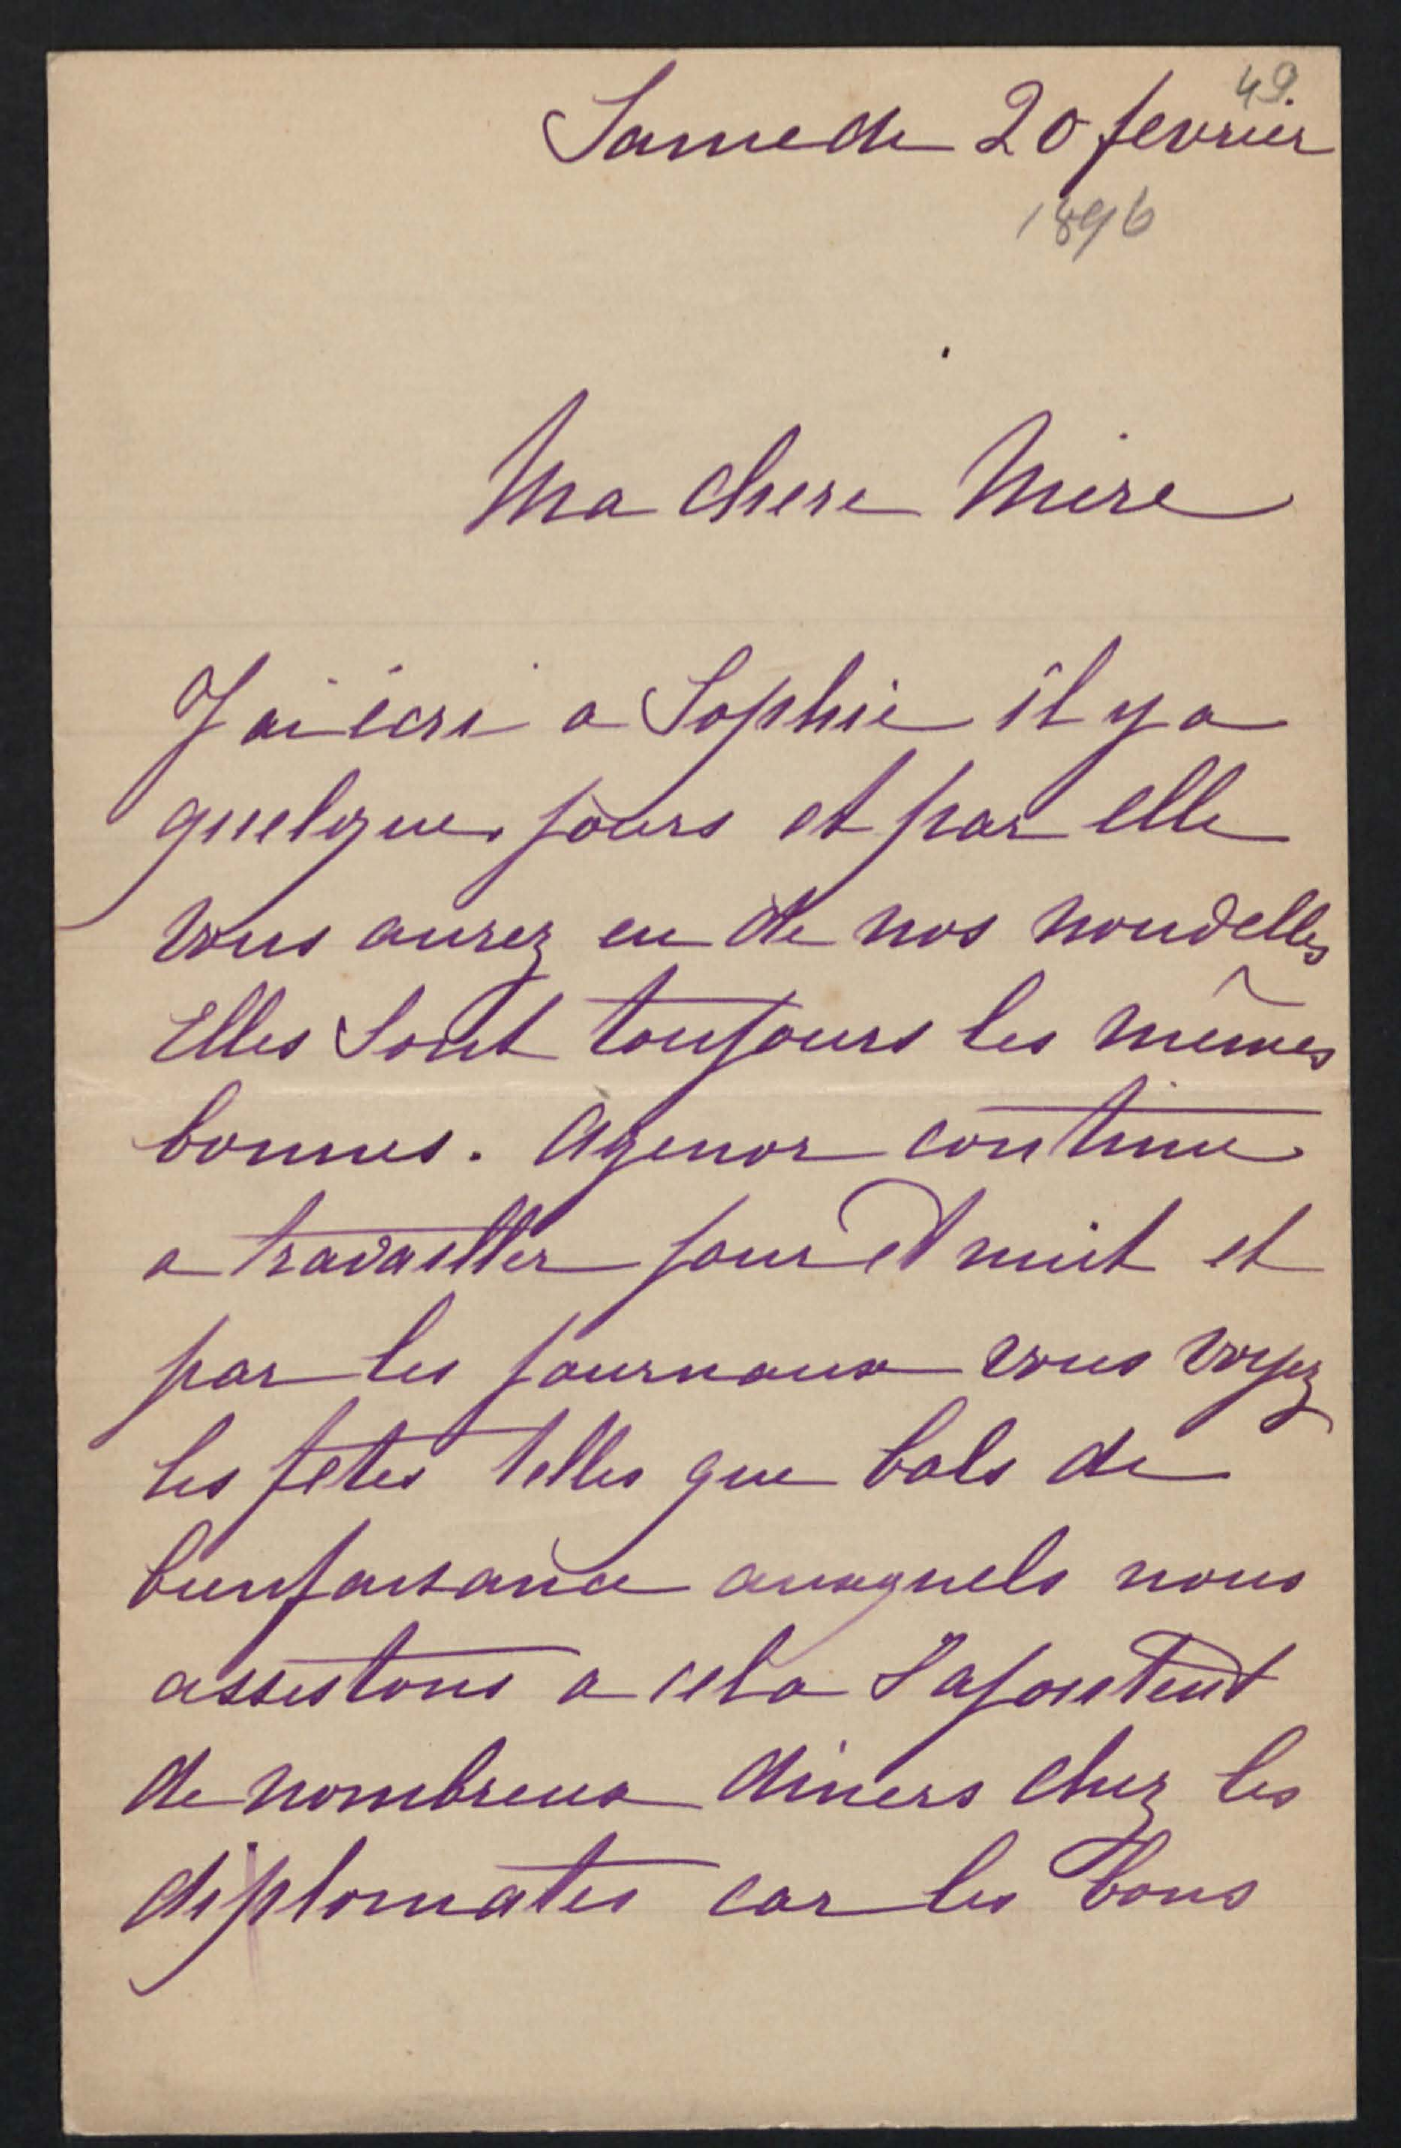 49.
Samedi 20 fevrier
1896
Ma chere Mère
J'ai écri a Sophie il y a
quelques jours et par elle
vous aurez eu de nos nouvelles
Elles sont toujours les mêmes
bonnes. Agenor continue
a travailler jour et nuit et
par les journaux vous voyez
les fetes telles que bals de
bienfaisance auxquels nous
assistons a cela s'ajoutent
de nombreux diners chez les
diplomates car les bons